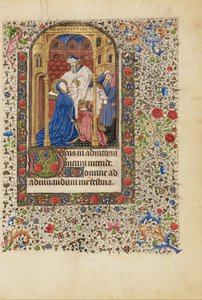 Deus in adiutorium
meum intende.
Domine ad
adiuuandum me festina.